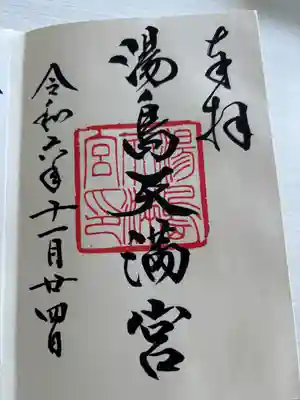 奉拝
湯島天満宮
令和六年十一月廿四日